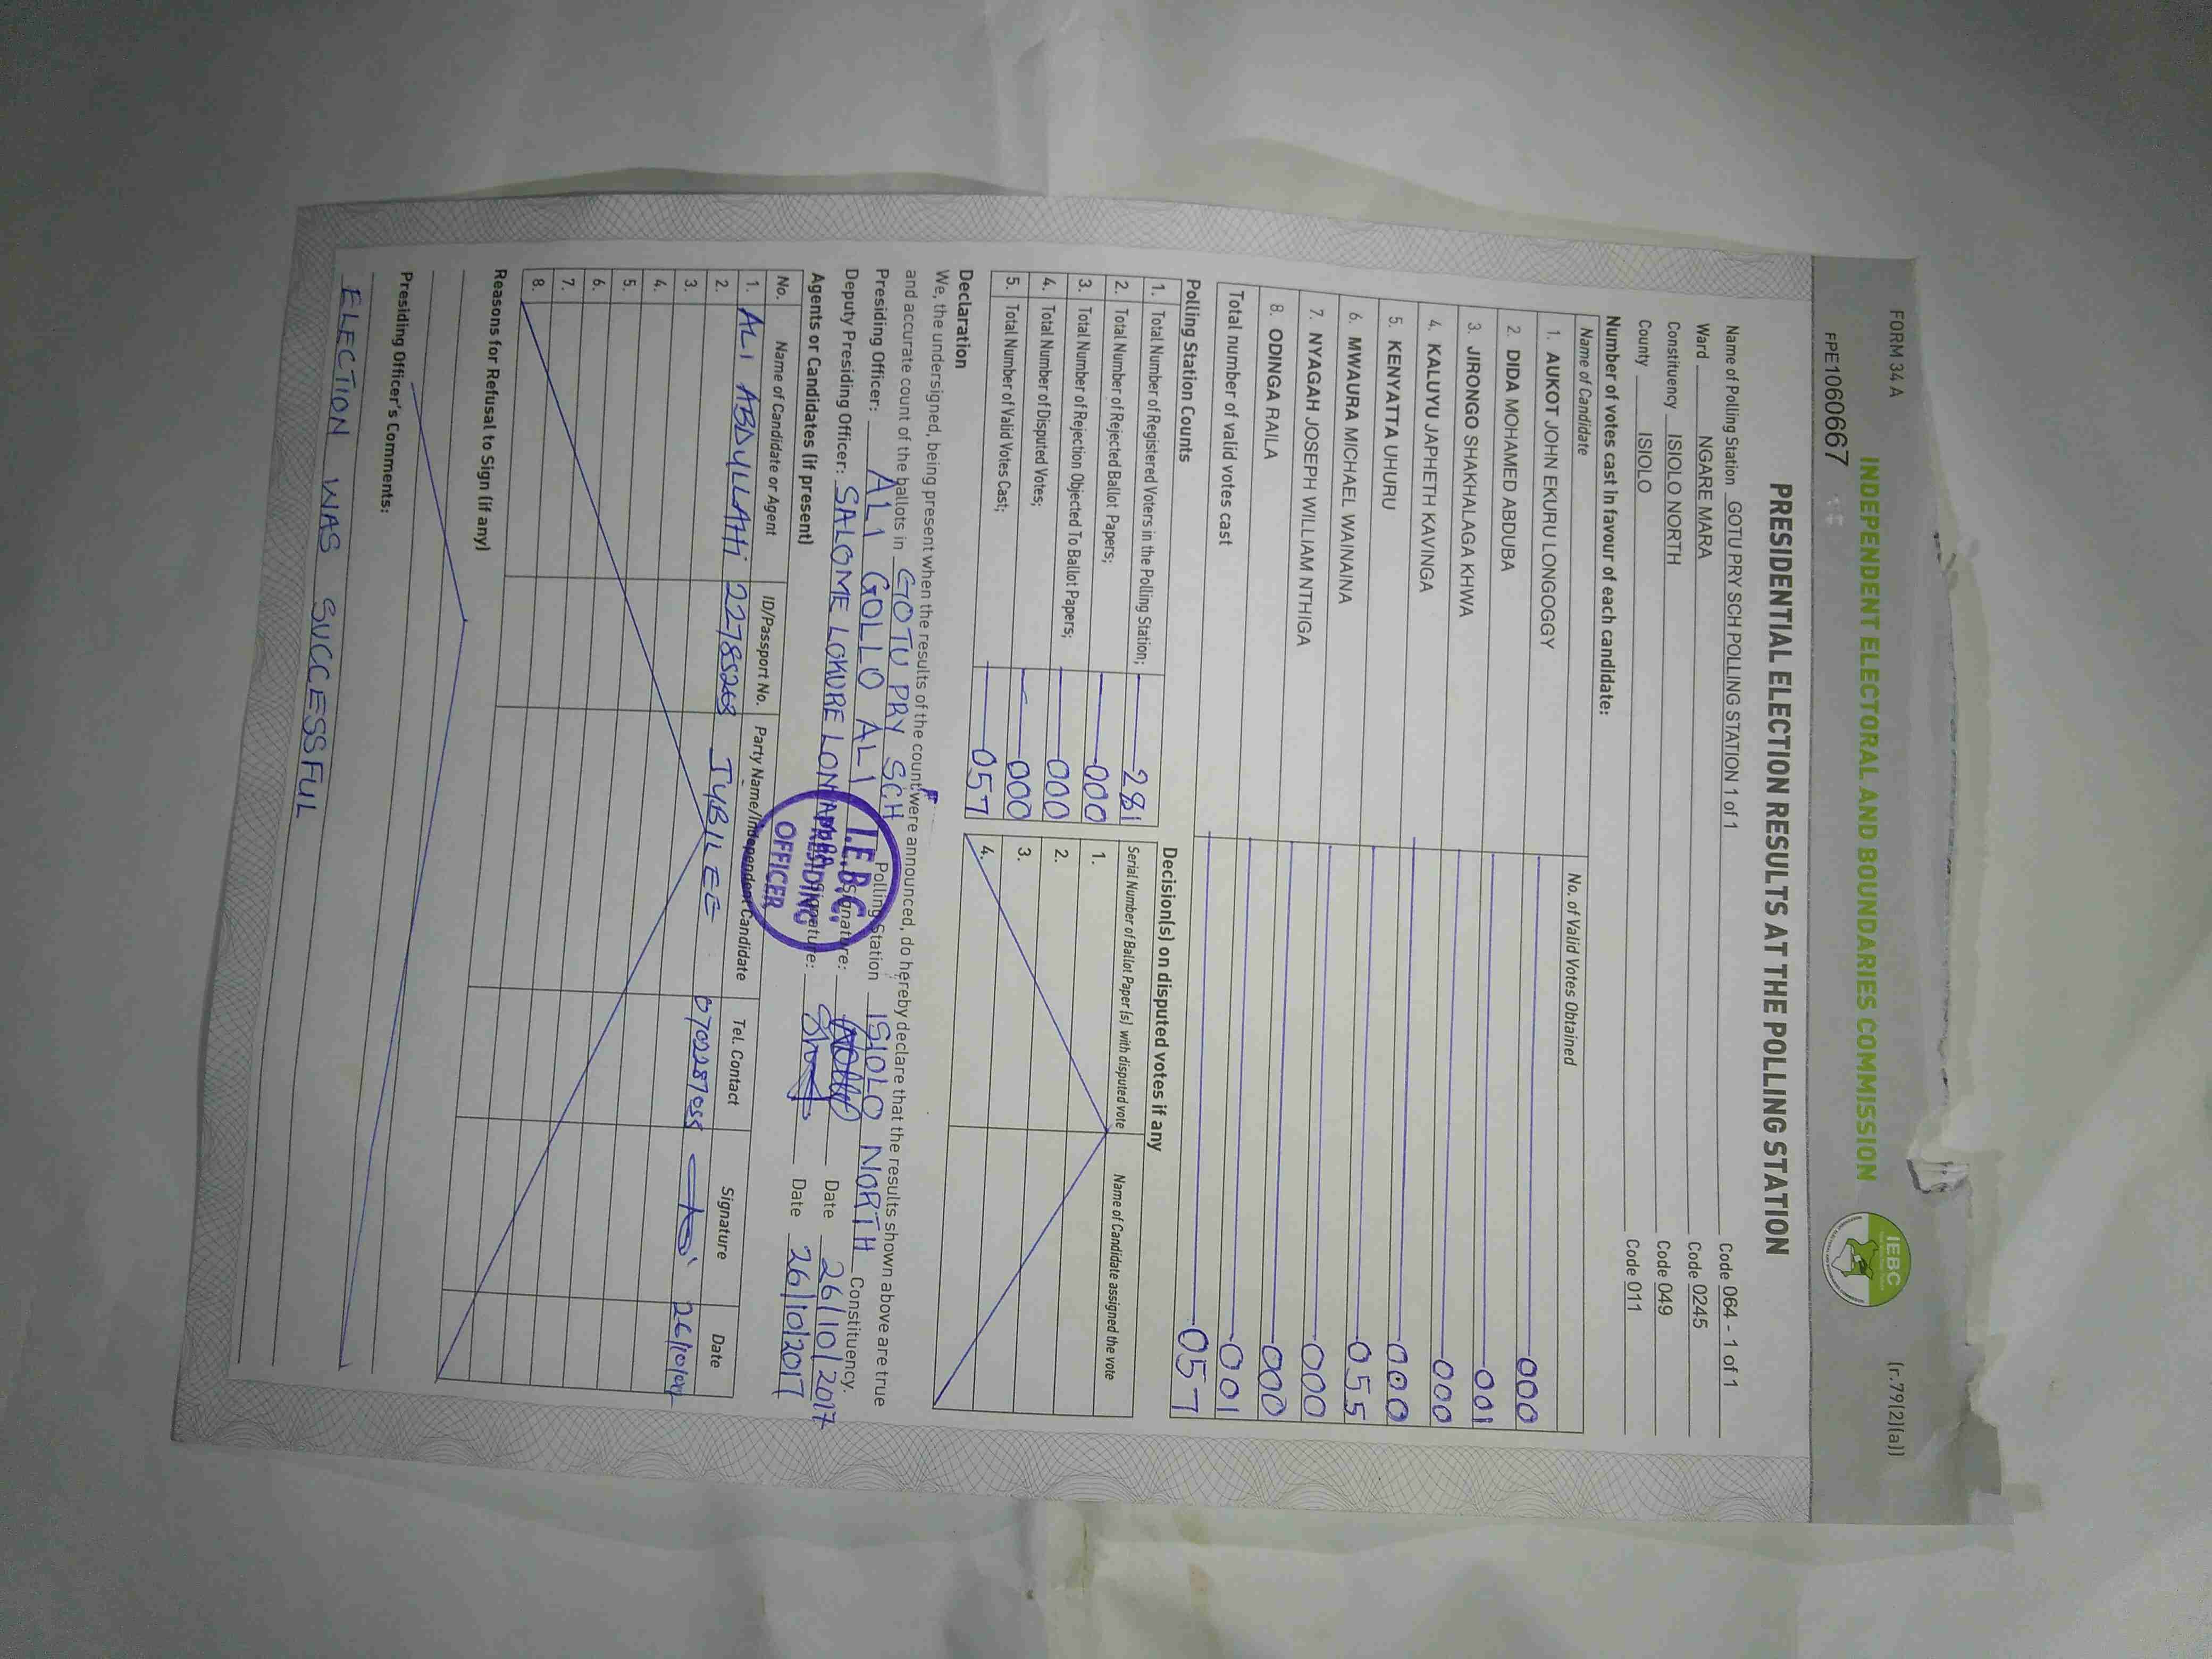 FORM 34 A
(r.79(2)(a))
INDEPENDENT ELECTORAL AND BOUNDARIES COMMISSION
IEBC
FPE1060667
PRESIDENTIAL ELECTION RESULTS AT THE POLLING STATION
Name of Polling Station GOTU PRY SCH POLLING STATION 1 of 1 Code 064 - 1 of 1
Ward NGARE MARA Code 0245
Constituency ISIOLO NORTH Code 049
County ISIOLO Code 011
Number of votes cast in favour of each candidate:
Name of Candidate No. of Valid Votes Obtained
1. AUKOT JOHN EKURU LONGOGGY 000
2. DIDA MOHAMED ABDUBA 001
3. JIRONGO SHAKHALAGA KHWA 000
4. KALUYU JAPHETH KAVINGA 000
5. KENYATTA UHURU 055
6. MWAURA MICHAEL WAINAINA 000
7. NYAGAH JOSEPH WILLIAM NTHIGA 000
8. ODINGA RAILA 001
Total number of valid votes cast 057
Polling Station Counts
1. Total Number of Registered Voters in the Polling Station; 281
2. Total Number of Rejected Ballot Papers; 000
3. Total Number of Rejection Objected To Ballot Papers; 000
4. Total Number of Disputed Votes; 000
5. Total Number of Valid Votes Cast; 057
Decision(s) on disputed votes if any
Serial Number of Ballot Paper (s) with disputed vote Name of Candidate assigned the vote
1.
2.
3.
4.
Declaration
We, the undersigned, being present when the results of the count were announced, do hereby declare that the results shown above are true
and accurate count of the ballots in GOTU PRY SCH Polling Station ISIOLO NORTH Constituency.
Presiding Officer: ALI GOLLO ALI Signature: Date 26/10/2017
Deputy Presiding Officer: SALOME LOKURE Signature: Date 26/10/2017
I.E.B.C.
PRESIDING
OFFICER
Agents or Candidates (if present)
No. Name of Candidate or Agent ID/Passport No. Party Name/Independent Candidate Tel. Contact Signature Date
1. ALI ABDULLAHI 22785268 JUBILEE 0702287055
2.
3.
4.
5.
6.
7.
8.
Reasons for Refusal to Sign (if any)
Presiding Officer's Comments:
ELECTION WAS SUCCESSFUL